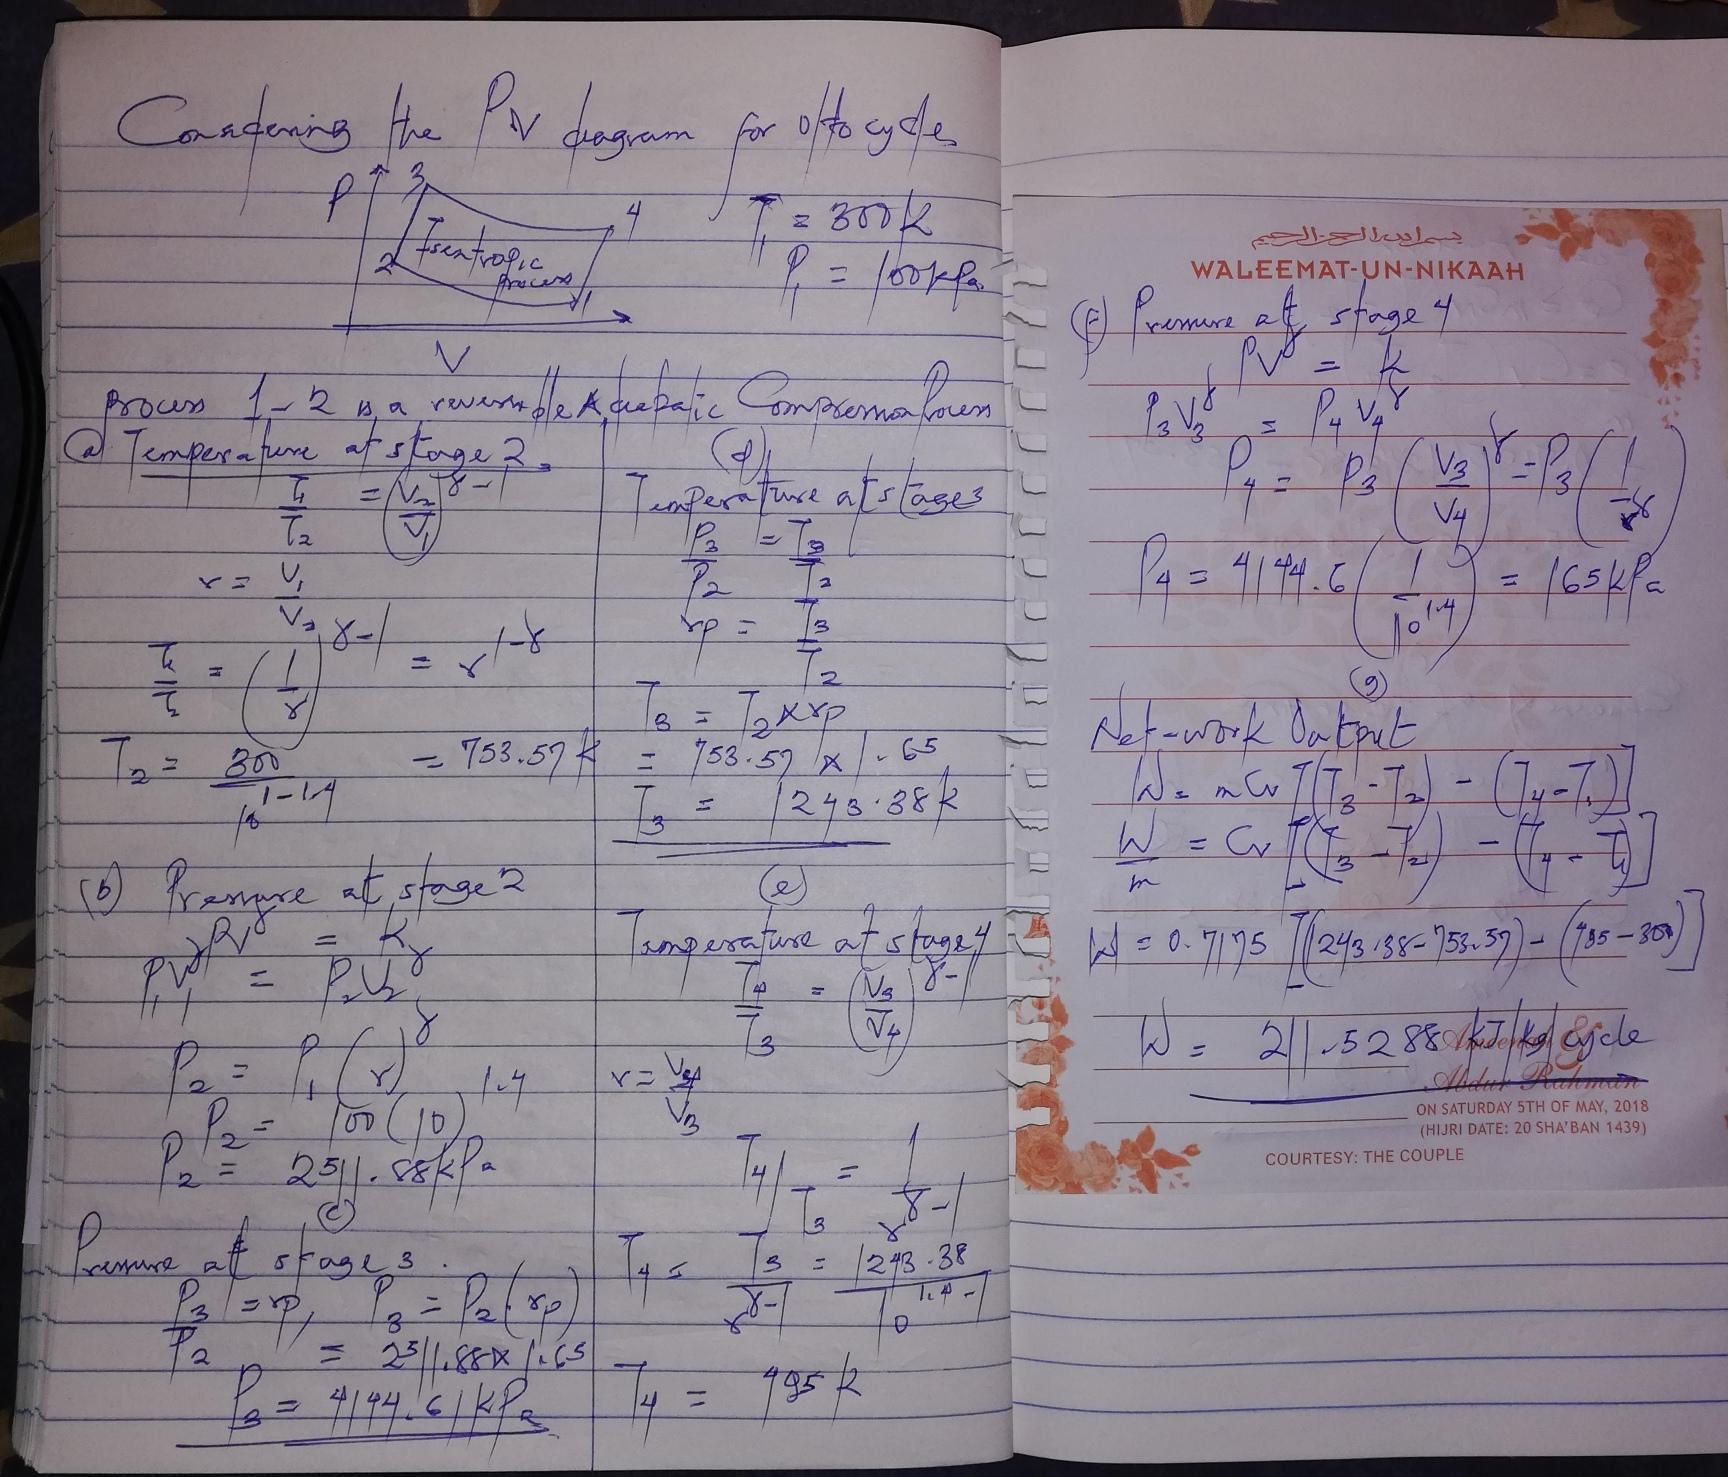 Considering the PV diagram for otto cycles
P 3 4
T₁ = 300k
Isentropic process
2 1
P₁ = 100kPa
V
process 1-2 is a reversible Adiabatic Compression Process
(a) Temperature at stage 2
T₁/T₂ = (V₂/V₁)^γ-1
r = V₁/V₂
T₁/T₂ = (1/r)^γ-1 = r^1-γ
T₂ = 300/10^1-1.4 = 753.57k
(b) Pressure at stage 2
PV^γ = k
P₁V₁^γ = P₂V₂^γ
P₂ = P₁(r)^γ
P₂ = 100(10)^1.4
P₂ = 2511.88kPa
(c)
Pressure at stage 3.
P₃/P₂ = rp, P₃ = P₂(rp)
= 2511.88 x 1.65
P₃ = 4144.61kPa
(d)
Temperature at stage 3
P₃/P₂ = T₃/T₂
rp = T₃/T₂
T₃ = T₂ x rp
= 753.57 x 1.65
T₃ = 1243.38k
(e)
Temperature at stage 4
T₄/T₃ = (V₃/V₄)^γ-1
r = V₄/V₃
T₄/T₃ = 1/r^γ-1
T₄ = T₃/r^γ-1 = 1243.38/10^1.4-1
T₄ = 495k
بسم الله الرحمن الرحيم
WALEEMAT-UN-NIKAAH
(f) Pressure at stage 4
PV^γ = k
P₃V₃^γ = P₄V₄^γ
P₄ = P₃(V₃/V₄)^γ = P₃(1/r^γ)
P₄ = 4144.6(1/10^1.4) = 165kPa
(g)
Net-work Output
W = mCv[(T₃-T₂) - (T₄-T₁)]
W/m = Cv[(T₃-T₂) - (T₄-T₁)]
W = 0.7175[(1243.38-753.57) - (495-300)]
W = 211.5288 kJ/kg/cycle
Ameenah &
Abdur Rahman
ON SATURDAY 5TH OF MAY, 2018
(HIJRI DATE: 20 SHA'BAN 1439)
COURTESY: THE COUPLE